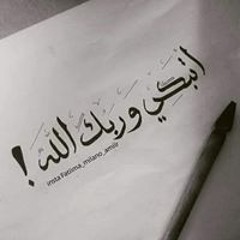 أتبكي وربك الله !
insta:Fatima_milano_amiir